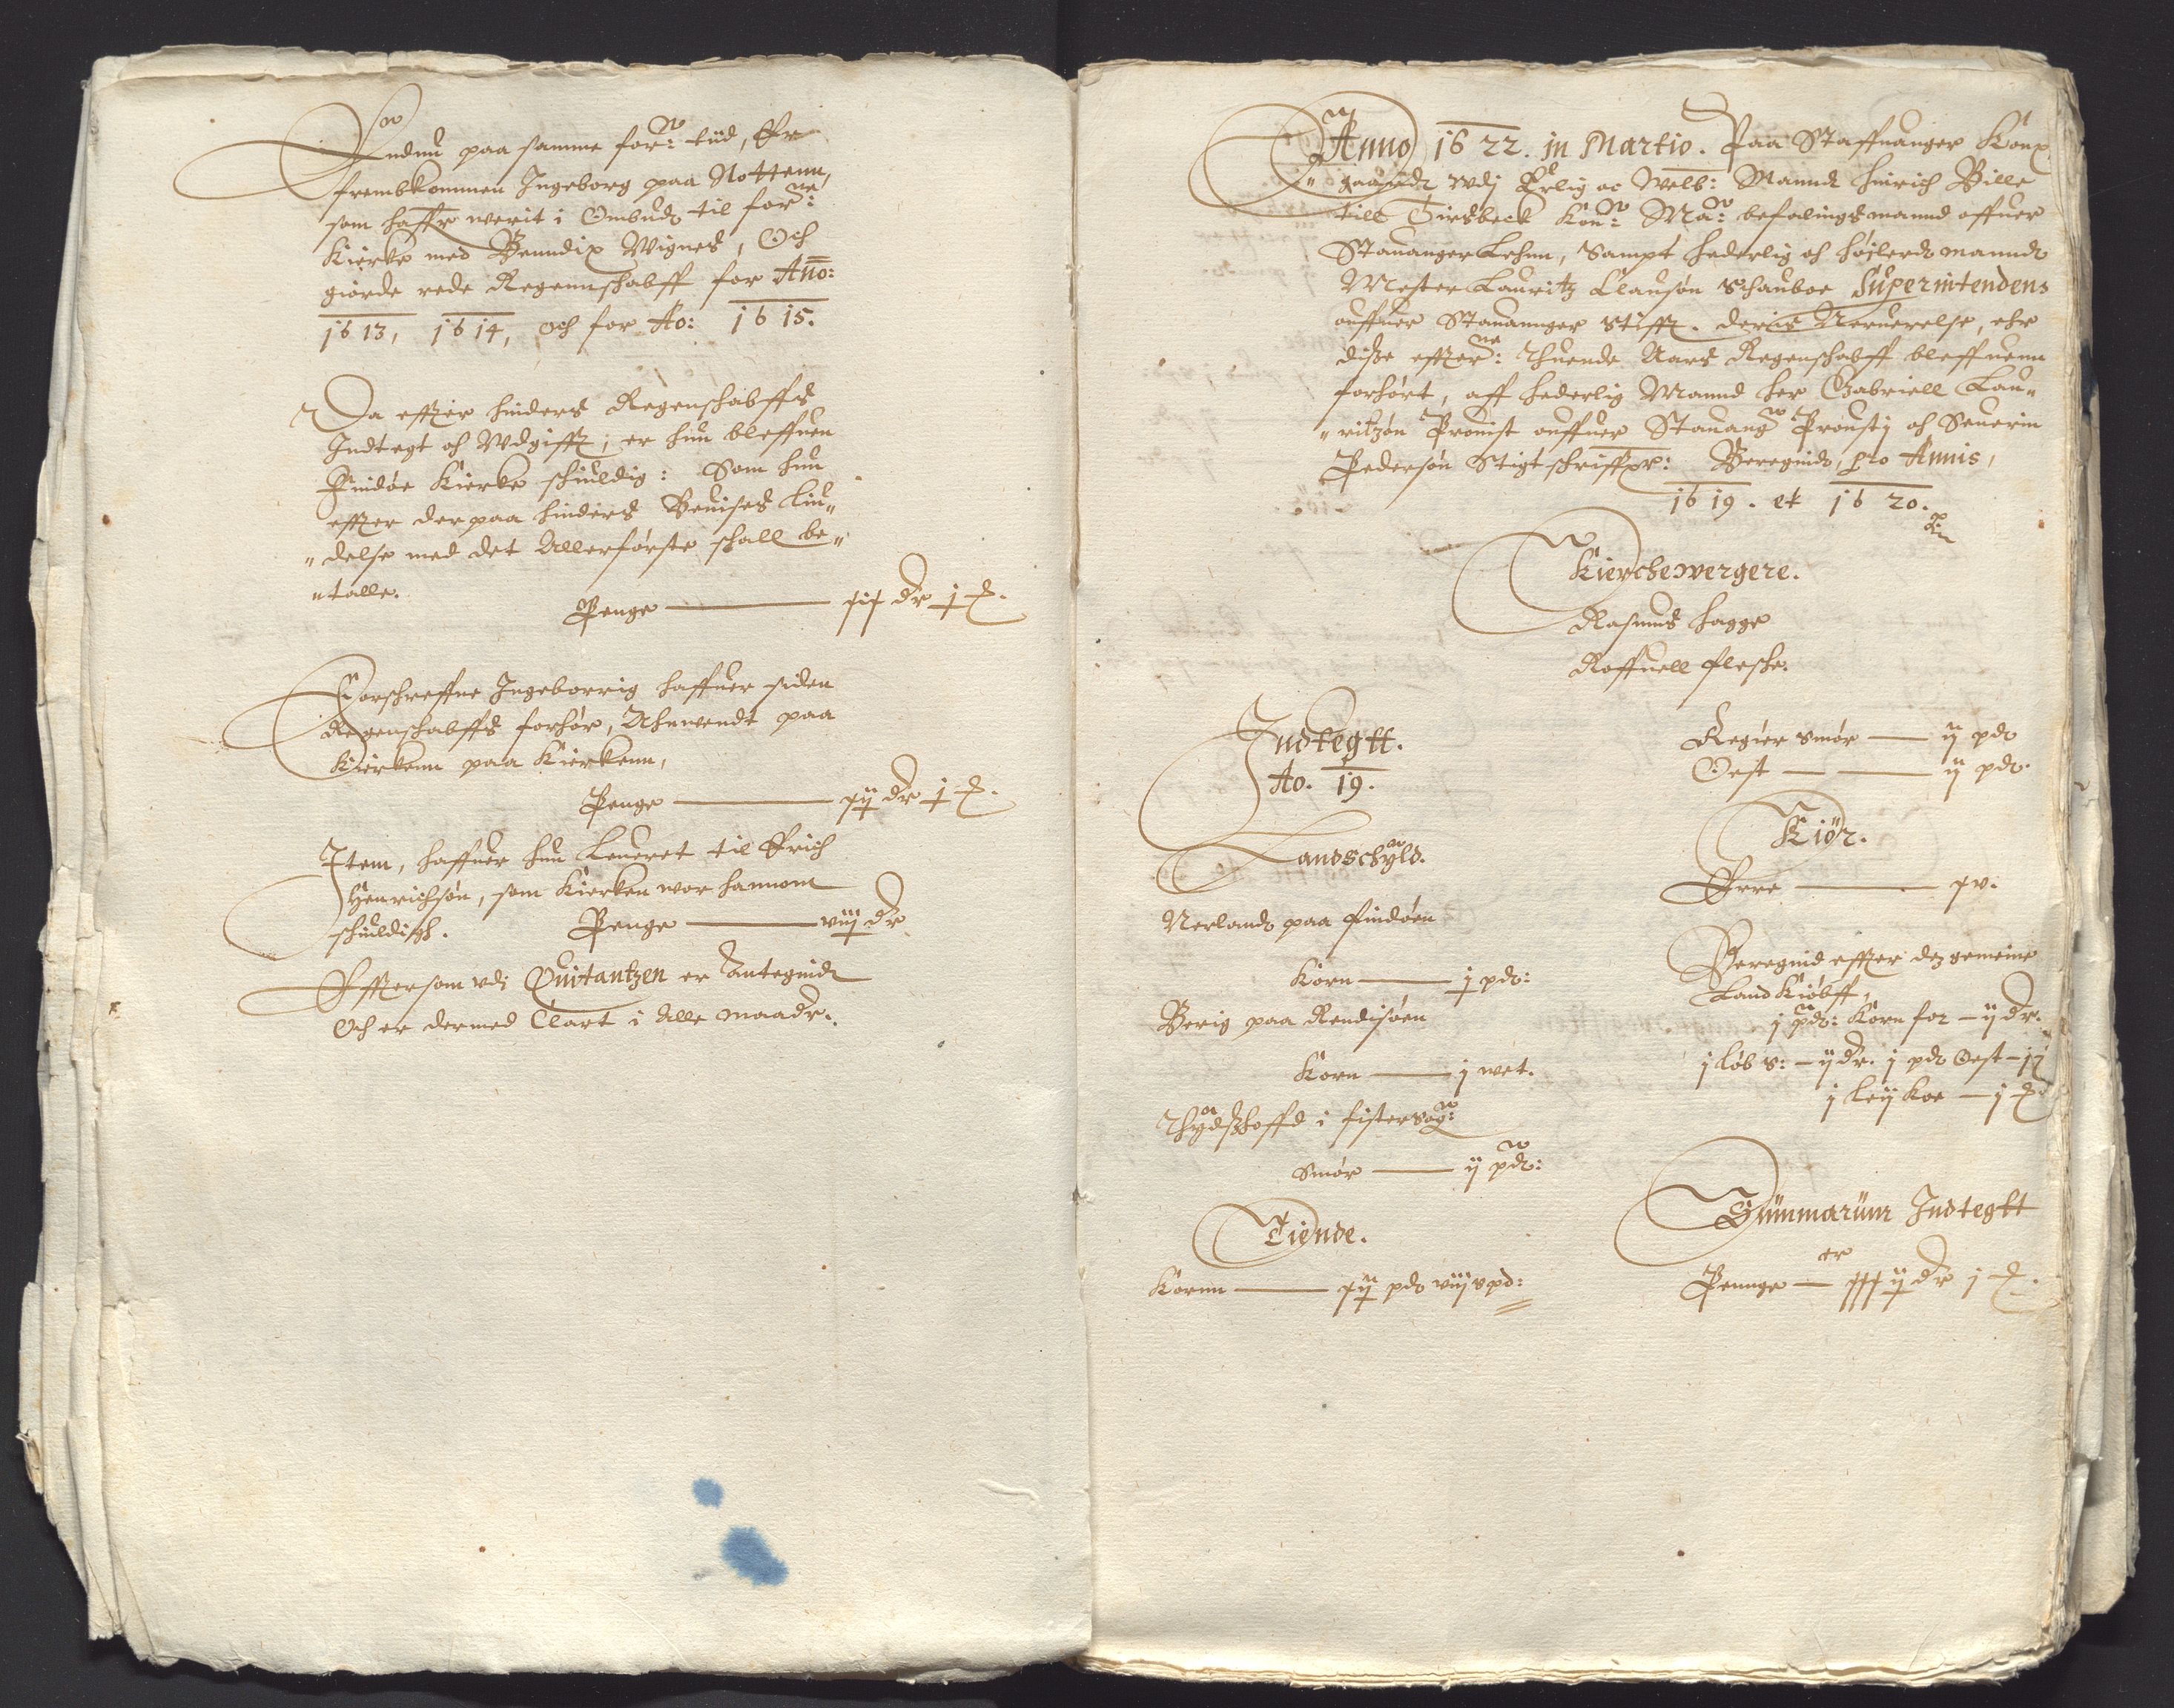 Endnu paa samme for: tiid, Er
frembkommen Ingeborg paa Nottenn,
som haffr werit i Ombuds til forne:
Kierke med Benndix Wignes, Och
giorde rede Regennschabff for Ano:
1613, 1614, och for Ao: 1615.
Da effter hinders Regenschabffs
Indtegt och Wdgifft, er hun bleffuen
Findøe Kierke schuldig: Som hun
effter derpaa hinders Beuises liu„
„delse med det Allerførste schall be„
„talle.
Penge
Forschreffne Ingeborrig haffuer siden
Regenschabffs forhør, Anwendt paa
Kierkenn paa Kierkenn,
Penge
Item, haffuer hun leueret til Erich
Henrichsøn, som Kierken war hannom
schuldigh. Penge — viij dr
Effter som vdi Quitantzen er Antegnidt
Och er dermed Clart i Alle maader.
Anno 1622. in Martio. Paa Staffuanger Kong„
„gaardt wdj Erlig oc Welb: Mannds Hinrich Bille
till Tirsbeck Kon: Ma: befalingsmannd offuer
Stauanger Lehnn, Sampt hederlig och høilerde mannds
Mester Lauritz Clausøn Schauboe Superintendens
ouffuer Stauannger Stifft. deris Neruerelse, ehr
disse effterne: Thuende Aars Regenschabff bleffuenn
forhørt, aff hederlig Mannd Her Gabriell Lau„
„ritzøn Prouist ouffuer Stauang Prousti och Seuerin
Pedersøn Stigtschriffr: Beregnids, pro Annis,
1619. et 1620.
Kierchewergere.
Rasmus Hagge
Roffuell Flesche.
Indtegtt.
Ao. 19.
Landschyld.
Nerlands paa Findøen
Korn — j pd:
Berig paa Rendisøen
Korn — j wet.
i Fistersog:
Smør — ij pd:
Tiende.
Kornn — pd viij spd:
Regier Smør — ij pd
Oest — ij pd.
Kiør.
Erre — xv.
Beregnid effter dz gemeine
Landkiøbff,
j pd: Korn for — ij dr.
j løb s: — ij dr. j pd Oest —
j leij Koe — j
Summarum Indtegtt
er
Pennge